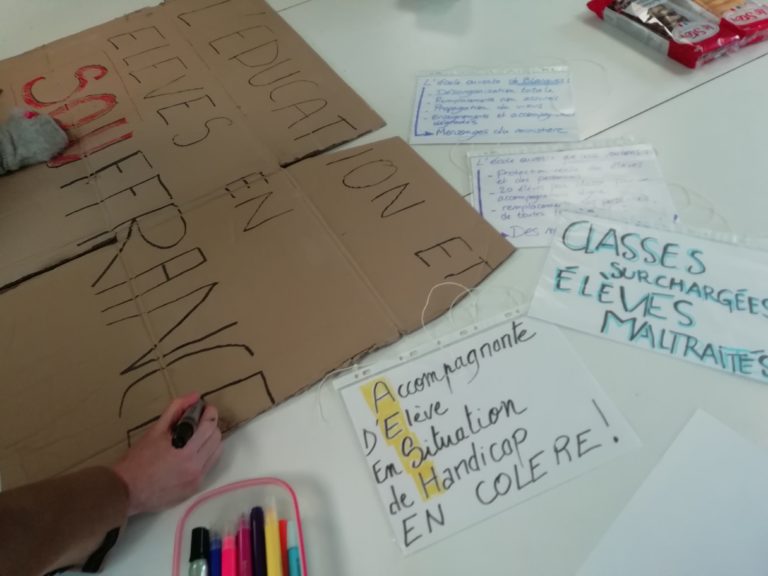 L'ÉDUCATION ET
ELÈVES EN
SOUFFRANCE
L'école ouverte de Blanquer :
- Désorganisation totale
- Remplacements non assurés
- Propagation du virus
- enseignements et accompagnements
Mensonges du ministère
L'école ouverte
- Protection
et des personnels
- 20 élèves par classe
accompagne
- remplacement
de toutes
CLASSES
SURCHARGÉES
ÉLÈVES
MALTRAITÉS
Accompagnante
D'Elève
En Situation
de Handicap
EN COLERE!